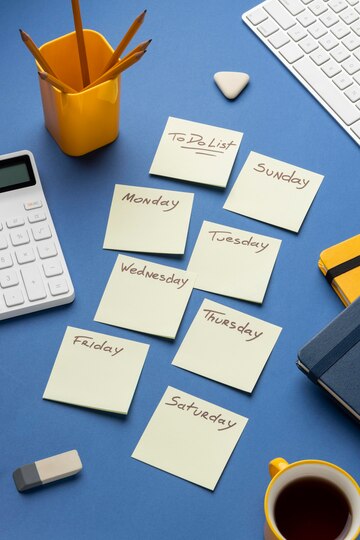 To Do List
Sunday
Monday
Tuesday
Wednesday
Thursday
Friday
Saturday